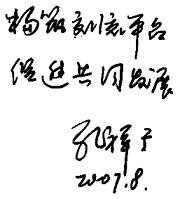 构筑刻字平台
促进共同发展
孔祥予
2007.8.